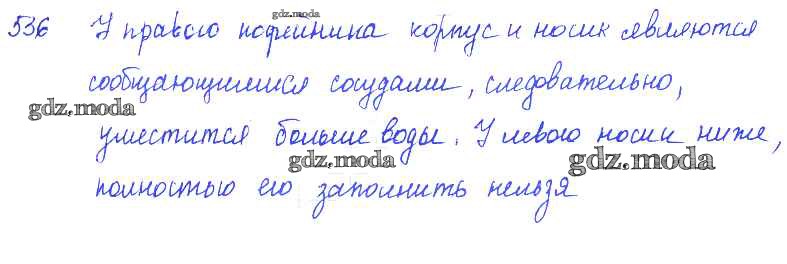 gdz.moda
536 У правого кофейника корпус и носик являются
сообщающимися сосудами, следовательно,
gdz.moda
уместится больше воды. У левого носик ниже,
gdz.moda
gdz.moda
полностью его заполнить нельзя